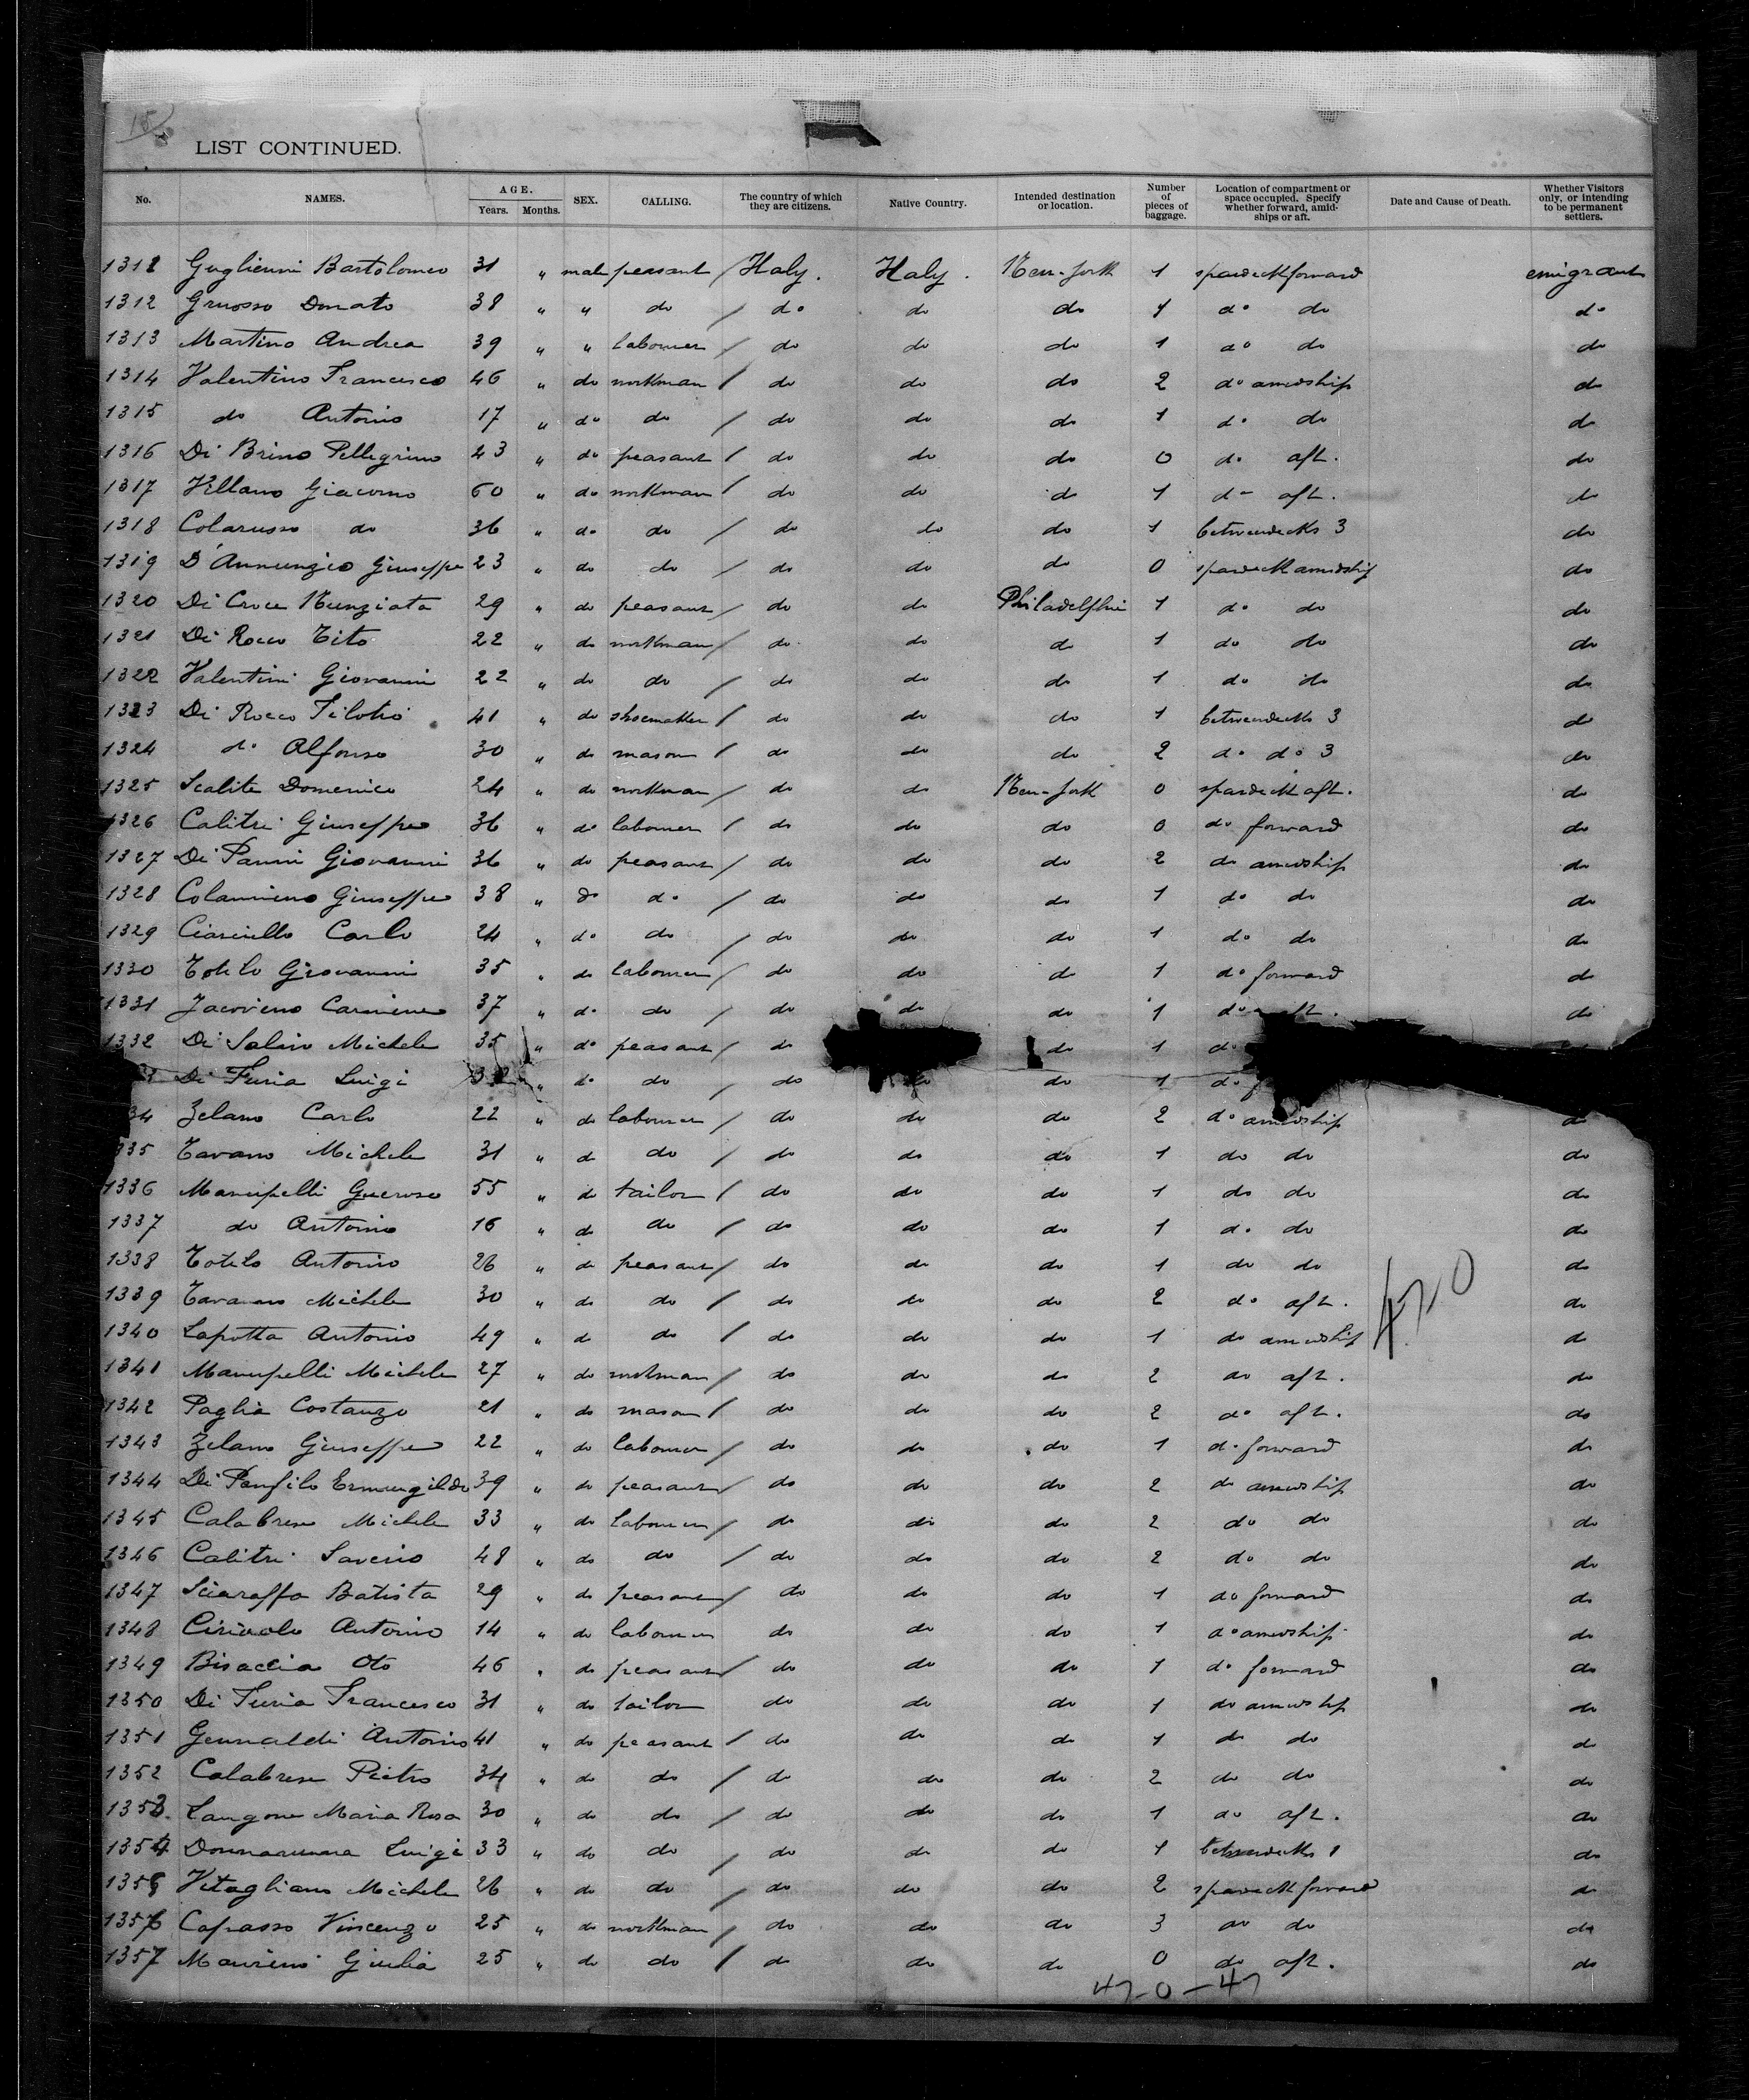 15
LIST CONTINUED.
No. NAMES. AGE. Years. Months. SEX. CALLING. The country of which they are citizens. Native Country. Intended destination or location. Number of pieces of baggage. Location of compartment or space occupied. Specify whether forward, amidships or aft. Date and Cause of Death. Whether Visitors only, or intending to be permanent settlers.
1311 Guglielmi Bartolomeo 31 " male peasant / Italy. Italy. New-York 1 spardeck forward emigrant
1312 Gruosso Donato 38 " " do / do do do 1 do do do
1313 Martino Andrea 39 " " labourer / do do do 1 do do do
1314 Valentino Francesco 46 " do workman / do do do 2 do amidship do
1315 do Antonio 17 " do do / do do do 1 do do do
1316 Di Brino Pellegrino 43 " do peasant / do do do 0 do aft. do
1317 Villano Giacomo 60 " do workman / do do do 1 do aft. do
1318 Colarusso do 36 " do do / do do do 1 betweendecks 3 do
1319 D'Annunzio Giuseppe 23 " do do / do do do 0 spardeck amidship do
1320 Di Croce Nunziata 29 " do peasant / do do Philadelphie 1 do do do
1321 Di Rocco Tito 22 " do workman / do do do 1 do do do
1322 Valentini Giovanni 22 " do do / do do do 1 do do do
1323 Di Rocco Filotio 41 " do shoemaker / do do do 1 betweendecks 3 do
1324 do Alfonso 30 " do mason / do do do 2 do do 3 do
1325 Scalite Domenico 24 " do workman / do do New-York 0 spardeck aft. do
1326 Calitri Giuseppe 36 " do labourer / do do do 0 do forward do
1327 Di Panni Giovanni 36 " do peasant / do do do 2 do amidship do
1328 Colannino Giuseppe 38 " do do / do do do 1 do do do
1329 Ciarciello Carlo 24 " do do / do do do 1 do do do
1330 Totilo Giovanni 35 " do labourer / do do do 1 do forward do
1331 Jacovino Carmine 37 " do do / do do do 1 do aft. do
1332 Di Salvio Michele 35 " do peasant / do do 1 do
Di Furia Luigi " do do / do do do 1 do
34 Zelano Carlo 22 " do labourer / do do do 2 do amidship do
335 Tavano Michele 31 " do do / do do do 1 do do do
1336 Manupelli Gueroso 55 " do tailor / do do do 1 do do do
1337 do Antonio 16 " do do / do do do 1 do do do
1338 Totilo Antonio 26 " do peasant / do do do 1 do do do
1339 Tavano Michele 30 " do do / do do do 2 do aft. do
1340 Lapotta Antonio 49 " do do / do do do 1 do amidship do
47-0
1341 Manupelli Michele 27 " do workman / do do do 2 do aft. do
1342 Paglia Costanzo 21 " do mason / do do do 2 do aft. do
1343 Zelano Giuseppe 22 " do labourer / do do do 1 do forward do
1344 Di Panfilo Ermengildo 39 " do peasant / do do do 2 do amidship do
1345 Calabrese Michele 33 " do labourer / do do do 2 do do do
1346 Calitri Saverio 48 " do do / do do do 2 do do do
1347 Sciaraffa Batista 29 " do peasant / do do do 1 do forward do
1348 Ciriaolo Antonio 14 " do labourer do do do 1 do amidship do
1349 Bisaccia Oto 46 " do peasant / do do do 1 do forward do
1350 Di Furia Francesco 31 " do tailor do do do 1 do amidship do
1351 Gennaldi Antonio 41 " do peasant / do do do 1 do do do
1352 Calabrese Pietro 34 " do do / do do do 2 do do do
1353 Langone Maria Rosa 30 " do do / do do do 1 do aft. do
1354 Donnarumma Luigi 33 " do do / do do do 1 betweendecks 1 do
1355 Vitagliano Michele 26 " do do / do do do 2 spardeck forward do
1356 Capasso Vincenzo 25 " do workman / do do do 3 do do do
1357 Maurini Giulia 25 " do do / do do do 0 do aft. do
47-0-47